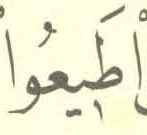 أَطِيعُوا